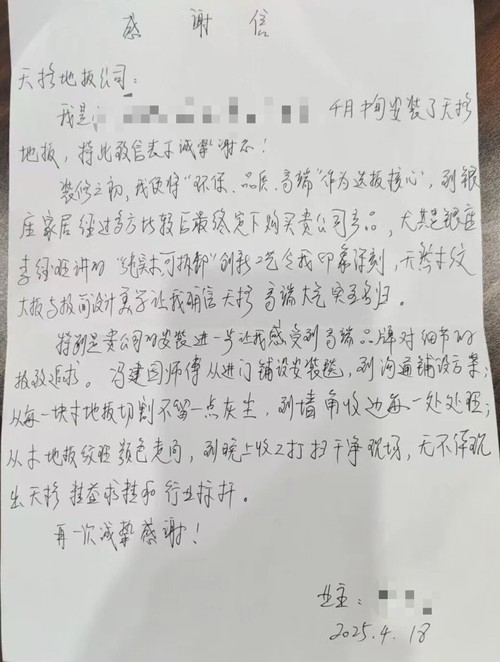 感谢信
天格地板公司：
我是 4月中旬安装了天格
地板，特此致信表示诚挚谢意！
装修之初，我便将“环保、品质、高端”作为选板核心，到银
座家居经过多方比较后最终定下购买贵公司产品，尤其是银座
李经理讲的“纯实木可拆卸”创新工艺令我印象深刻，天然木纹
大板与极简设计美学让我确信天格 高端大气 实至名归。
特别是贵公司的安装进一步让我感受到高端品牌对细节的
极致追求。冯建国师傅从进门铺设安装毯，到沟通铺设方案；
从每一块木地板切割不留一点灰尘，到墙角收边每一处处理；
从木地板纹理颜色走向，到晚上收工打扫干净现场，无不体现
出天格 精益求精和行业标杆。
再一次诚挚感谢！
业主：
2025.4.18